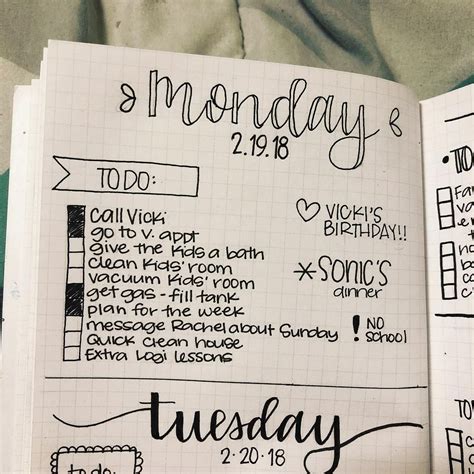 monday
2.19.18
TO DO:
call Vicki
go to v. appt
give the kids a bath
clean kids' room
vacuum kids' room
get gas - fill tank
plan for the week
message Rachel about Sunday
Quick clean house
Extra Logi lessons
♡ VICKI'S
BIRTHDAY!!
* SONIC'S
dinner
! NO
school
tuesday
2·20·18
to do: